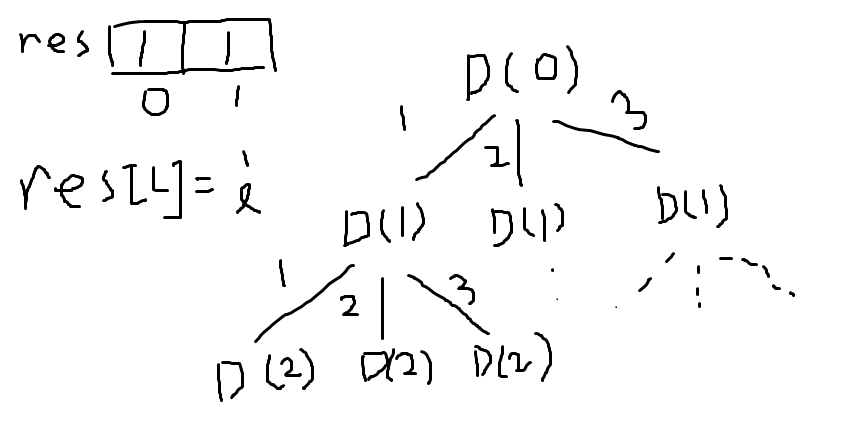 res 1 1
0 1
res[L]=i
D(0)
1 2 3
D(1) D(1) D(1)
1 2 3
D(2) D(2) D(2)